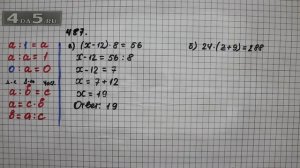 4DS.COM
487.
a : 1 = a
a : a = 1
0 : a = 0
a : b = c
a = c · b
b = a : c
а) (x-12) · 8 = 56
x-12 = 56 : 8
x-12 = 7
x = 7 + 12
x = 19
Ответ: 19
б) 24 · (z+9) = 288